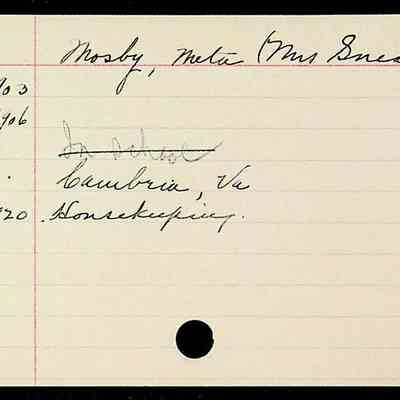 Mosby, Meta (Mrs
03
906
In school
Cambria, Va
20. Housekeeping.